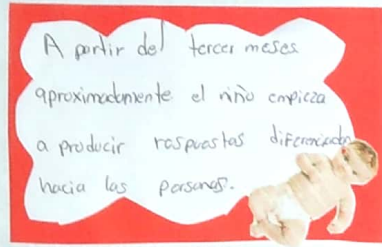 A partir del tercer meses
aproximadamente el niño empieza
a producir respuestas diferenciadas
hacia las personas.